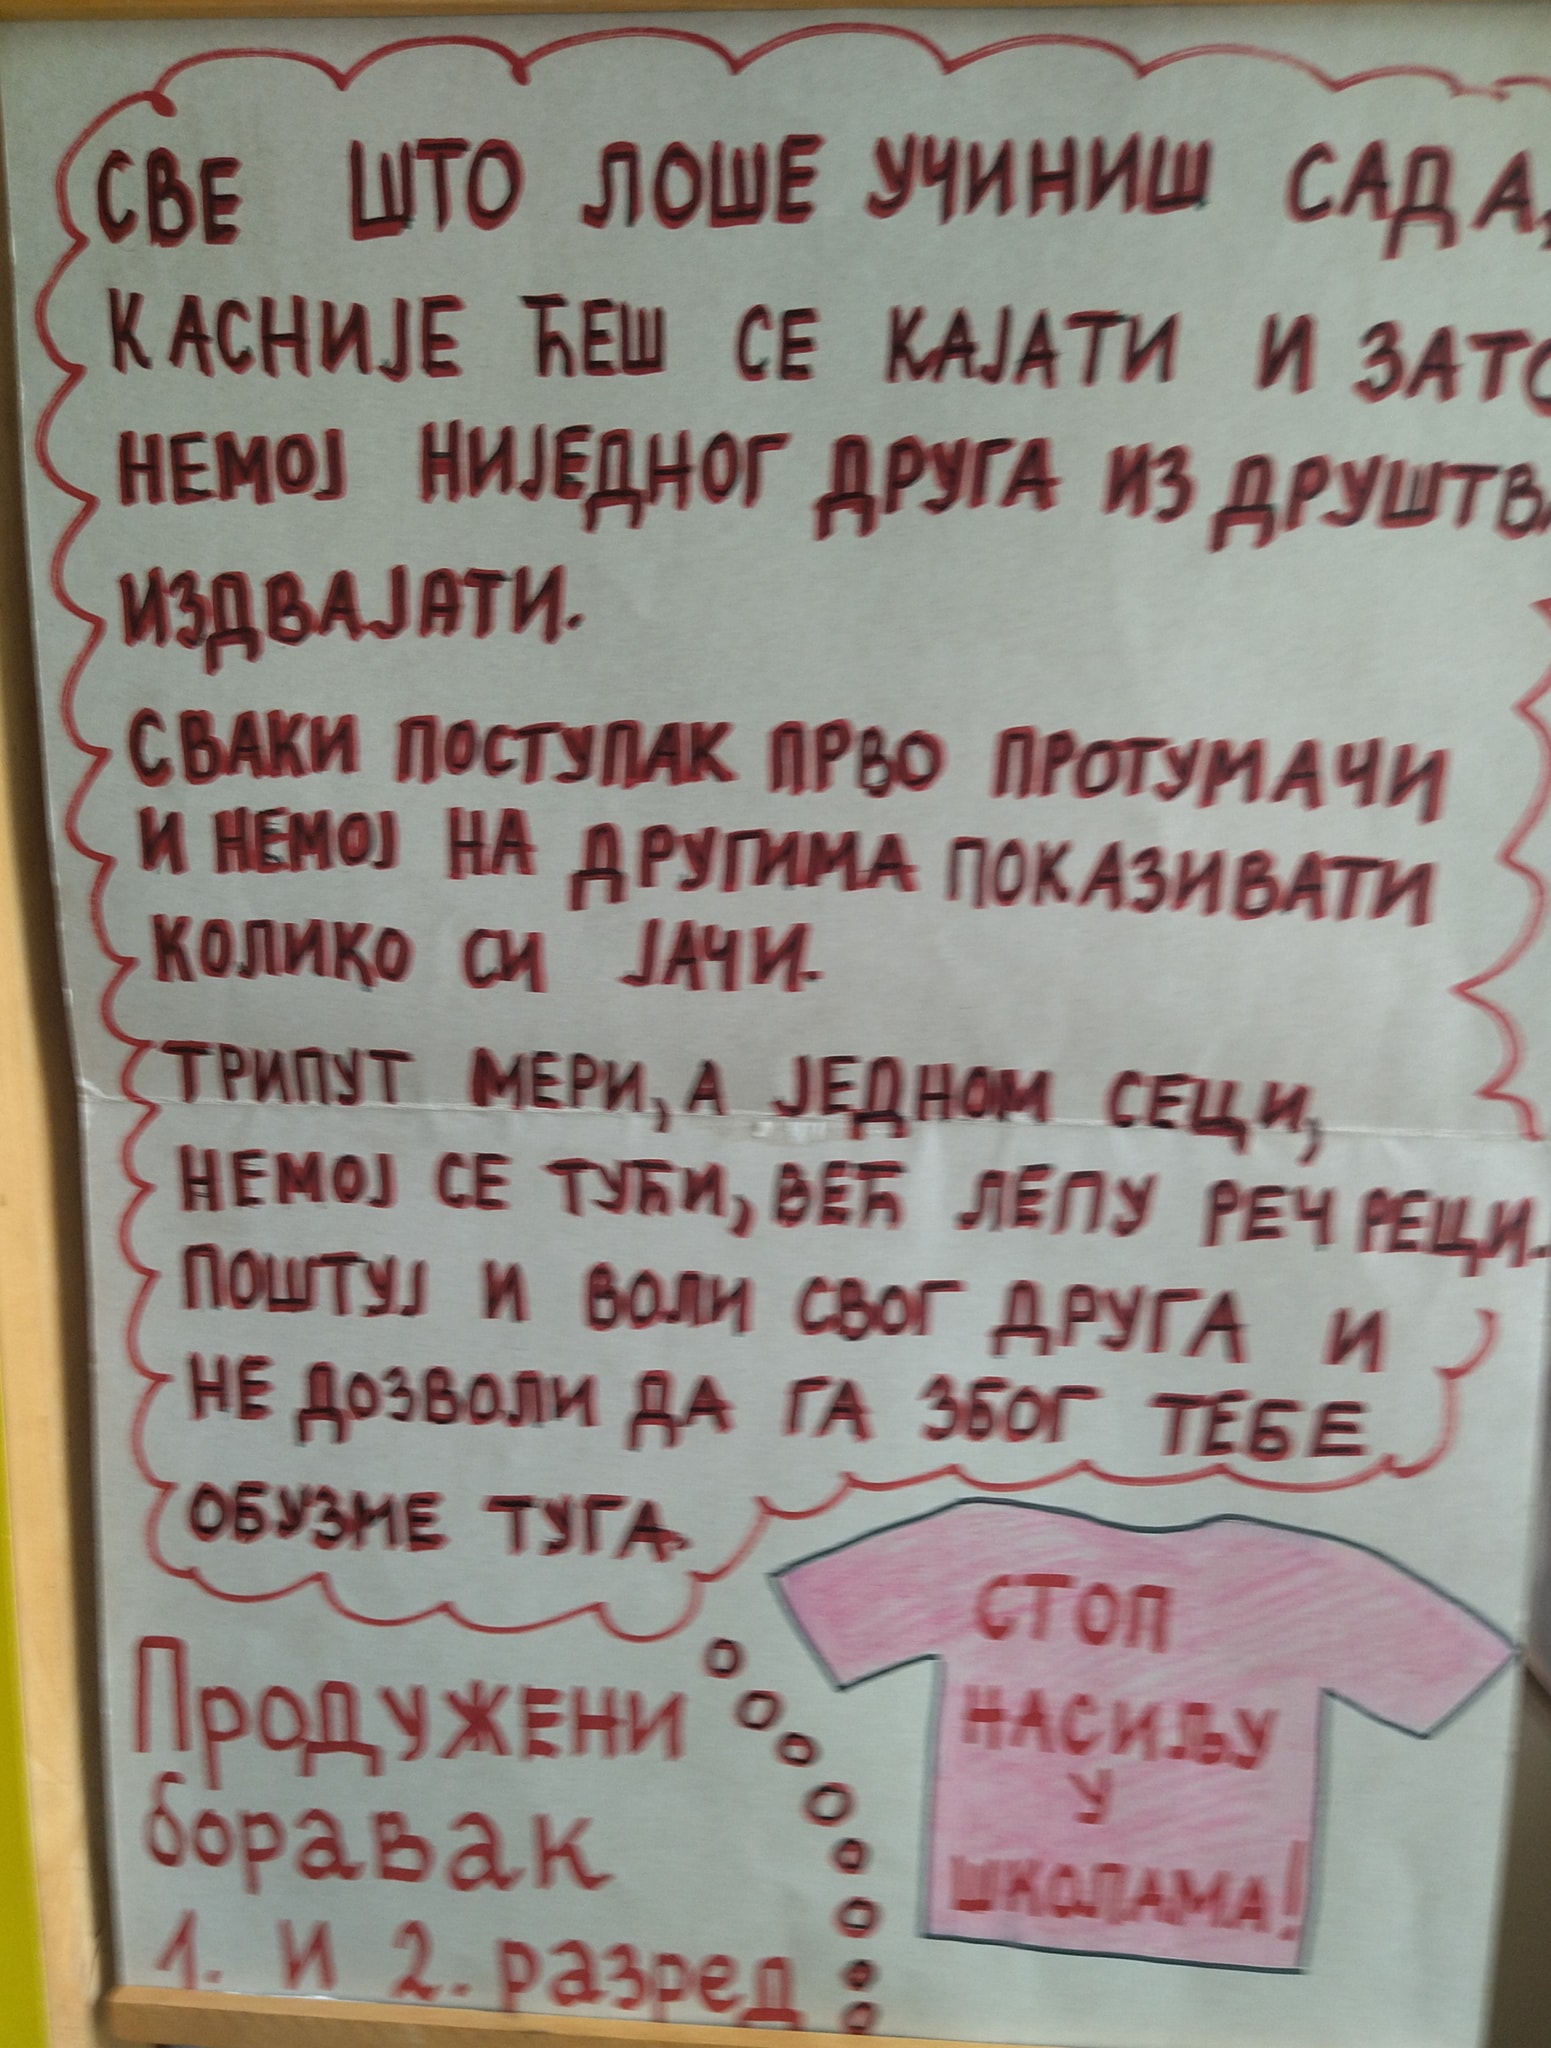 СВЕ ШТО ЛОШЕ УЧИНИШ САДА,
КАСНИЈЕ ЋЕШ СЕ КАЈАТИ И ЗАТО
НЕМОЈ НИЈЕДНОГ ДРУГА ИЗ ДРУШТВА
ИЗДВАЈАТИ.
СВАКИ ПОСТУПАК ПРВО ПРОТУМАЧИ
И НЕМОЈ НА ДРУГИМА ПОКАЗИВАТИ
КОЛИКО СИ ЈАЧИ.
ТРИПУТ МЕРИ, А ЈЕДНОМ СЕЦИ,
НЕМОЈ СЕ ТУЋИ, ВЕЋ ЛЕПУ РЕЧ РЕЦИ.
ПОШТУЈ И ВОЛИ СВОГ ДРУГА И
НЕ ДОЗВОЛИ ДА ГА ЗБОГ ТЕБЕ
ОБУЗМЕ ТУГА.
СТОП
НАСИЉУ
У
ШКОЛАМА!
ПРОДУЖЕНИ
боравак
1. и 2. разред